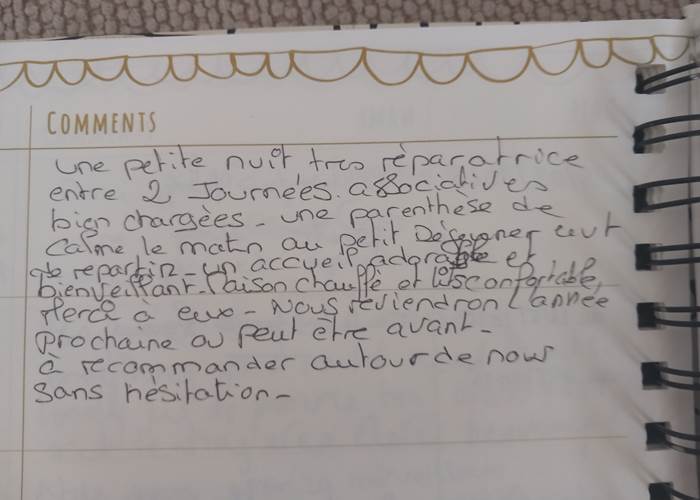 COMMENTS
une petite nuit très réparatrice
entre 2 Journées associatives
bien chargées - une parenthèse de
Calme le matin au petit Déjeuner avt
de repartir - un accueil adorable et
bienveillant. Maison chauffé et lits confortable,
Merci à eux - Nous reviendron l'année
prochaine ou peut être avant -
à recommander autour de nous
sans hésitation -